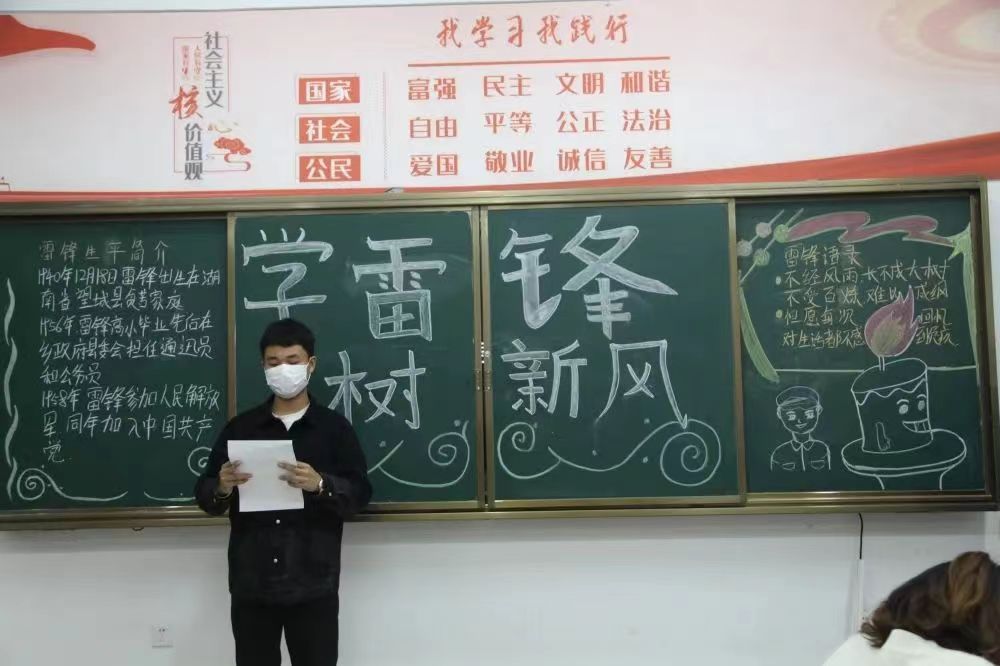 我学习我践行
社会主义
核
价值观
国家 富强 民主 文明 和谐
社会 自由 平等 公正 法治
公民 爱国 敬业 诚信 友善
雷锋生平简介
1940年12月18日雷锋出生在湖
南省望城县贫苦家庭
1956年雷锋高小毕业先后在
乡政府县委会担任通迅员
和公务员
1958年 雷锋参加人民解放
星 同年加入中国共产
党
学雷锋
树新风
雷锋语录
·不经风雨,长不成大树
不受百炼,难以成钢
·但愿每次 回忆
对生活都不感到负疚